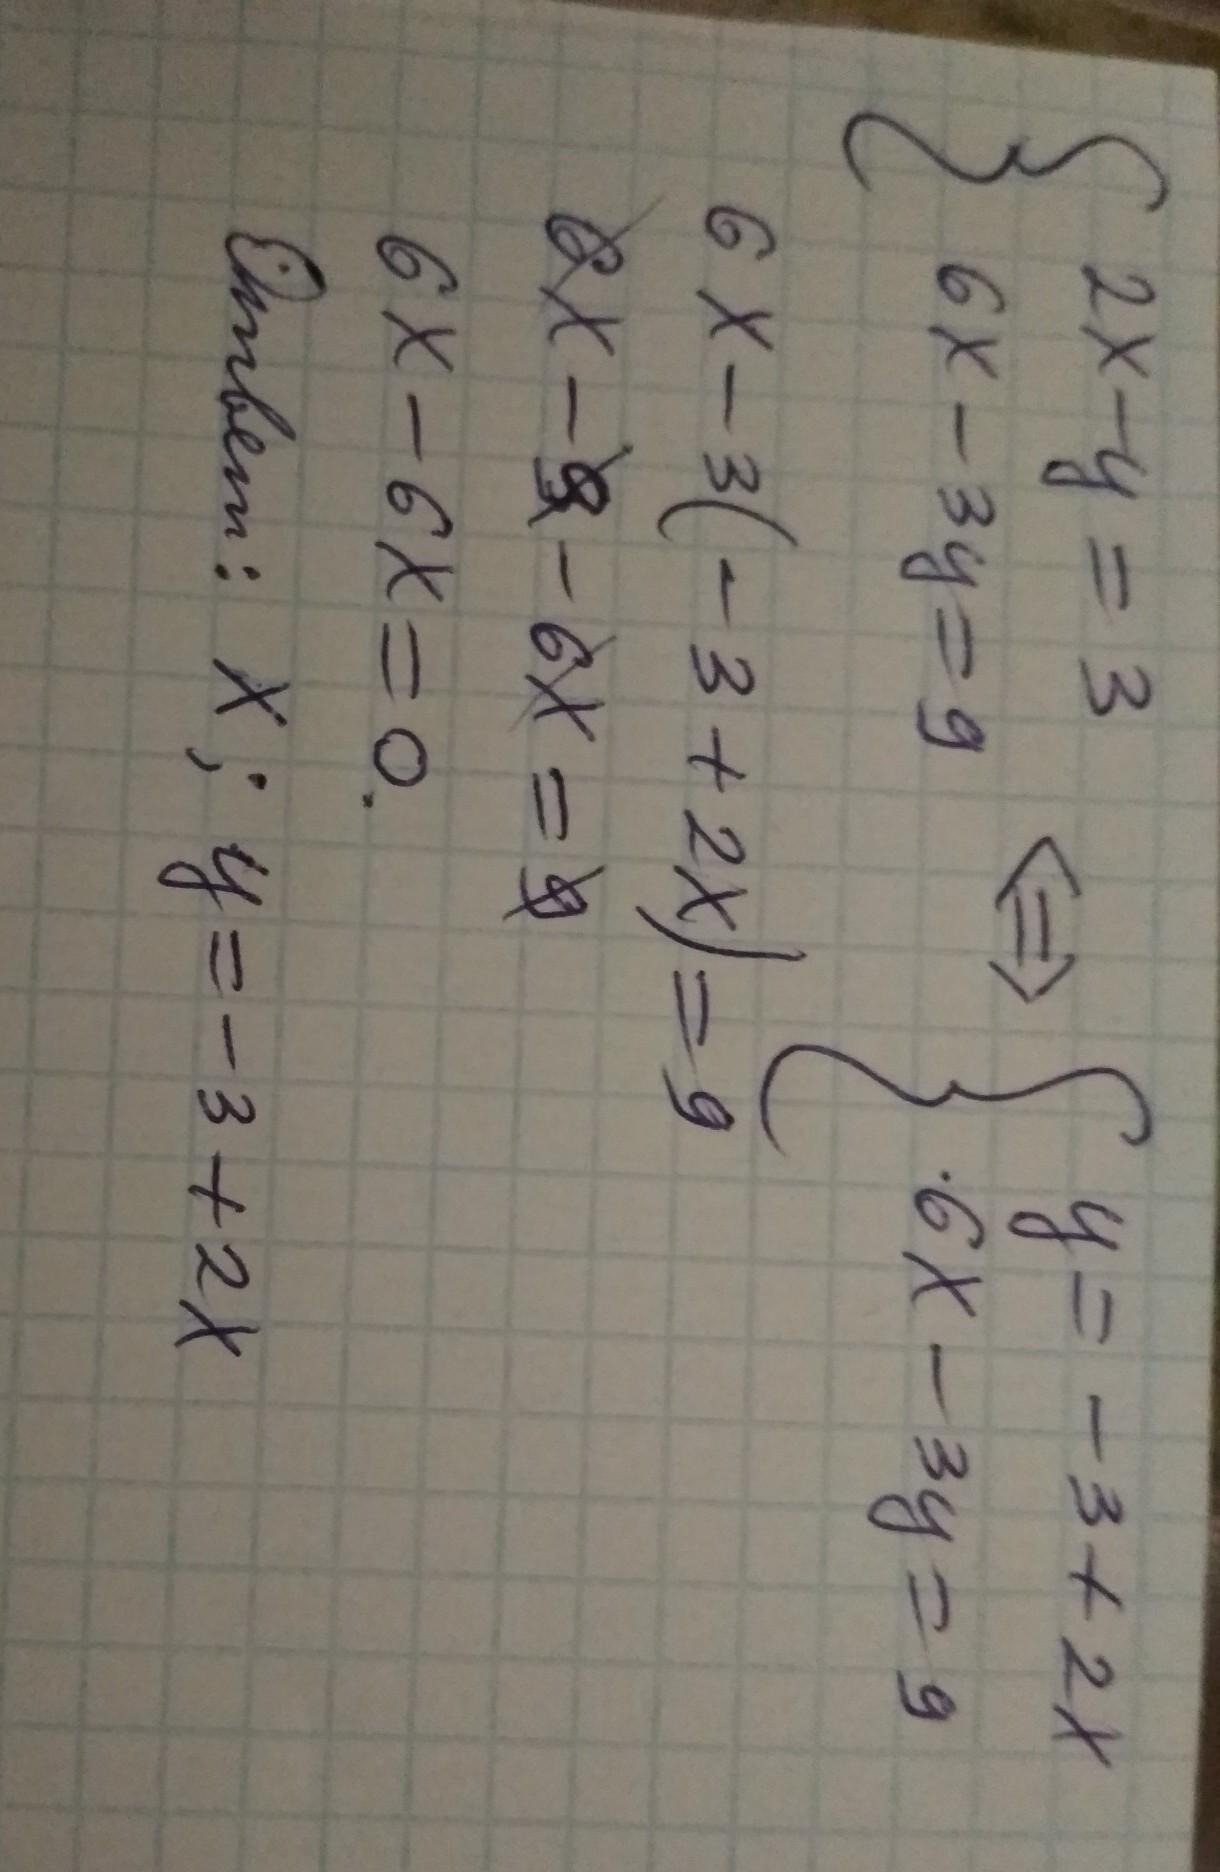 { 2x - y = 3
{ 6x - 3y = 9 <=> { y = -3 + 2x
{ 6x - 3y = 9
6x - 3(-3 + 2x) = 9
6x - 9 - 6x = 9
6x - 6x = 0.
Ответ: x; y = -3 + 2x